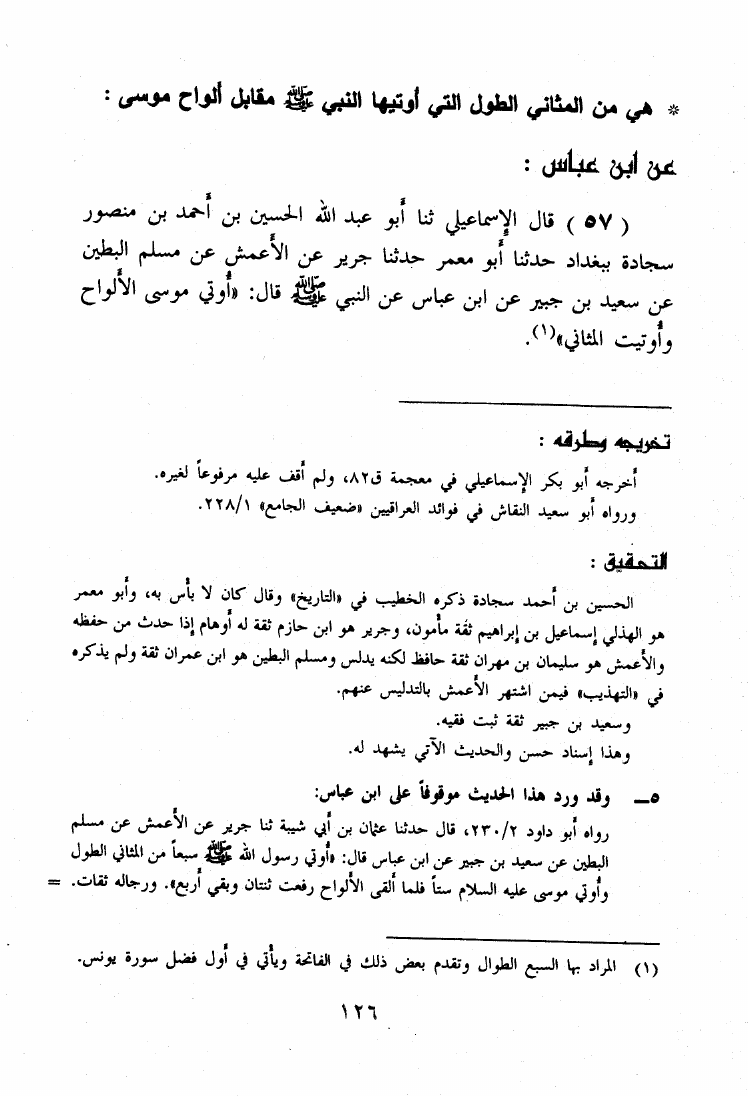 * هي من المثاني الطول التي أوتيها النبي ﷺ مقابل ألواح موسى :
عن ابن عباس :
( ٥٧ ) قال الإسماعيلي ثنا أبو عبد الله الحسين بن أحمد بن منصور
سجادة ببغداد حدثنا أبو معمر حدثنا جرير عن الأعمش عن مسلم البطين
عن سعيد بن جبير عن ابن عباس عن النبي ﷺ قال: «أُوتي موسى الألواح
وأُوتيت المثاني»(١).
تخريجه وطرقه :
أخرجه أبو بكر الإسماعيلي في معجمة ق٨٢، ولم أقف عليه مرفوعاً لغيره.
ورواه أبو سعيد النقاش في فوائد العراقيين «ضعيف الجامع» ٢٢٨/١.
التحقيق :
الحسين بن أحمد سجادة ذكره الخطيب في «التاريخ» وقال كان لا بأس به، وأبو معمر
هو الهذلي إسماعيل بن إبراهيم ثقة مأمون، وجرير هو ابن حازم ثقة له أوهام إذا حدث من حفظه
والأعمش هو سليمان بن مهران ثقة حافظ لكنه يدلس ومسلم البطين هو ابن عمران ثقة ولم يذكره
في «التهذيب» فيمن اشتهر الأعمش بالتدليس عنهم.
وسعيد بن جبير ثقة ثبت فقيه.
وهذا إسناد حسن والحديث الآتي يشهد له.
٥ــ وقد ورد هذا الحديث موقوفاً على ابن عباس:
رواه أبو داود ٢٣٠/٢، قال حدثنا عثمان بن أبي شيبة ثنا جرير عن الأعمش عن مسلم
البطين عن سعيد بن جبير عن ابن عباس قال: «أُوتي رسول الله ﷺ سبعاً من المثاني الطول
وأُوتي موسى عليه السلام ستاً فلما ألقى الألواح رفعت ثنتان وبقي أربع». ورجاله ثقات. =
(١) المراد بها السبع الطوال وتقدم بعض ذلك في الفاتحة ويأتي في أول فضل سورة يونس.
١٢٦